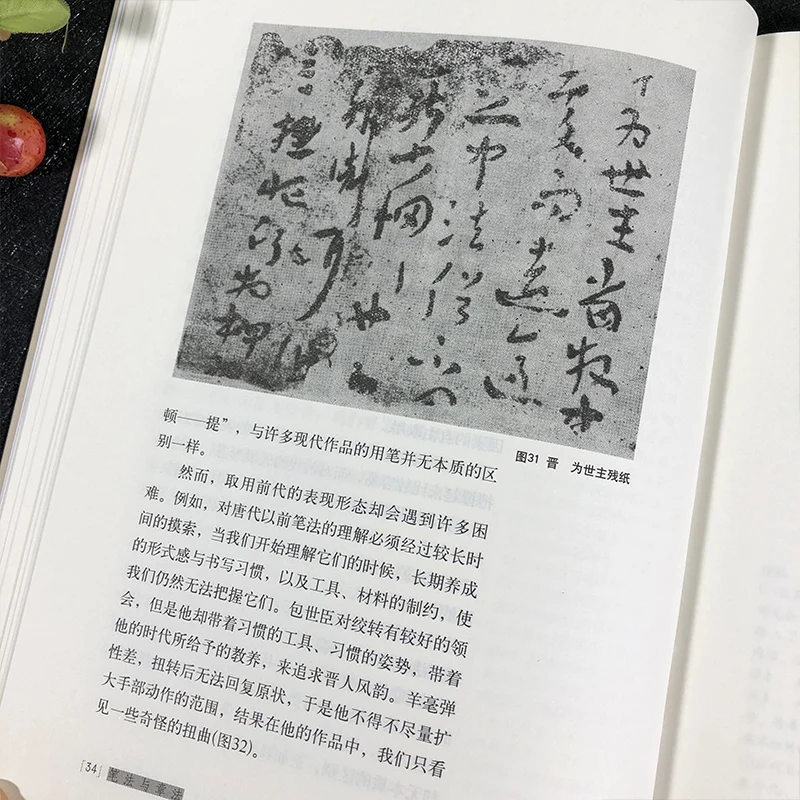 为世主
之中法僧
图31 晋 为世主残纸
顿——提”,与许多现代作品的用笔并无本质的区
别一样。
然而,取用前代的表现形态却会遇到许多困
难。例如,对唐代以前笔法的理解必须经过较长时
间的摸索,当我们开始理解它们的时候,长期养成
的形式感与书写习惯,以及工具、材料的制约,使
我们仍然无法把握它们。包世臣对绞转有较好的领
会,但是他却带着习惯的工具、习惯的姿势,带着
他的时代所给予的教养,来追求晋人风韵。羊毫弹
性差,扭转后无法回复原状,于是他不得不尽量扩
大手部动作的范围,结果在他的作品中,我们只看
见一些奇怪的扭曲(图32)。
「34」笔法与章法